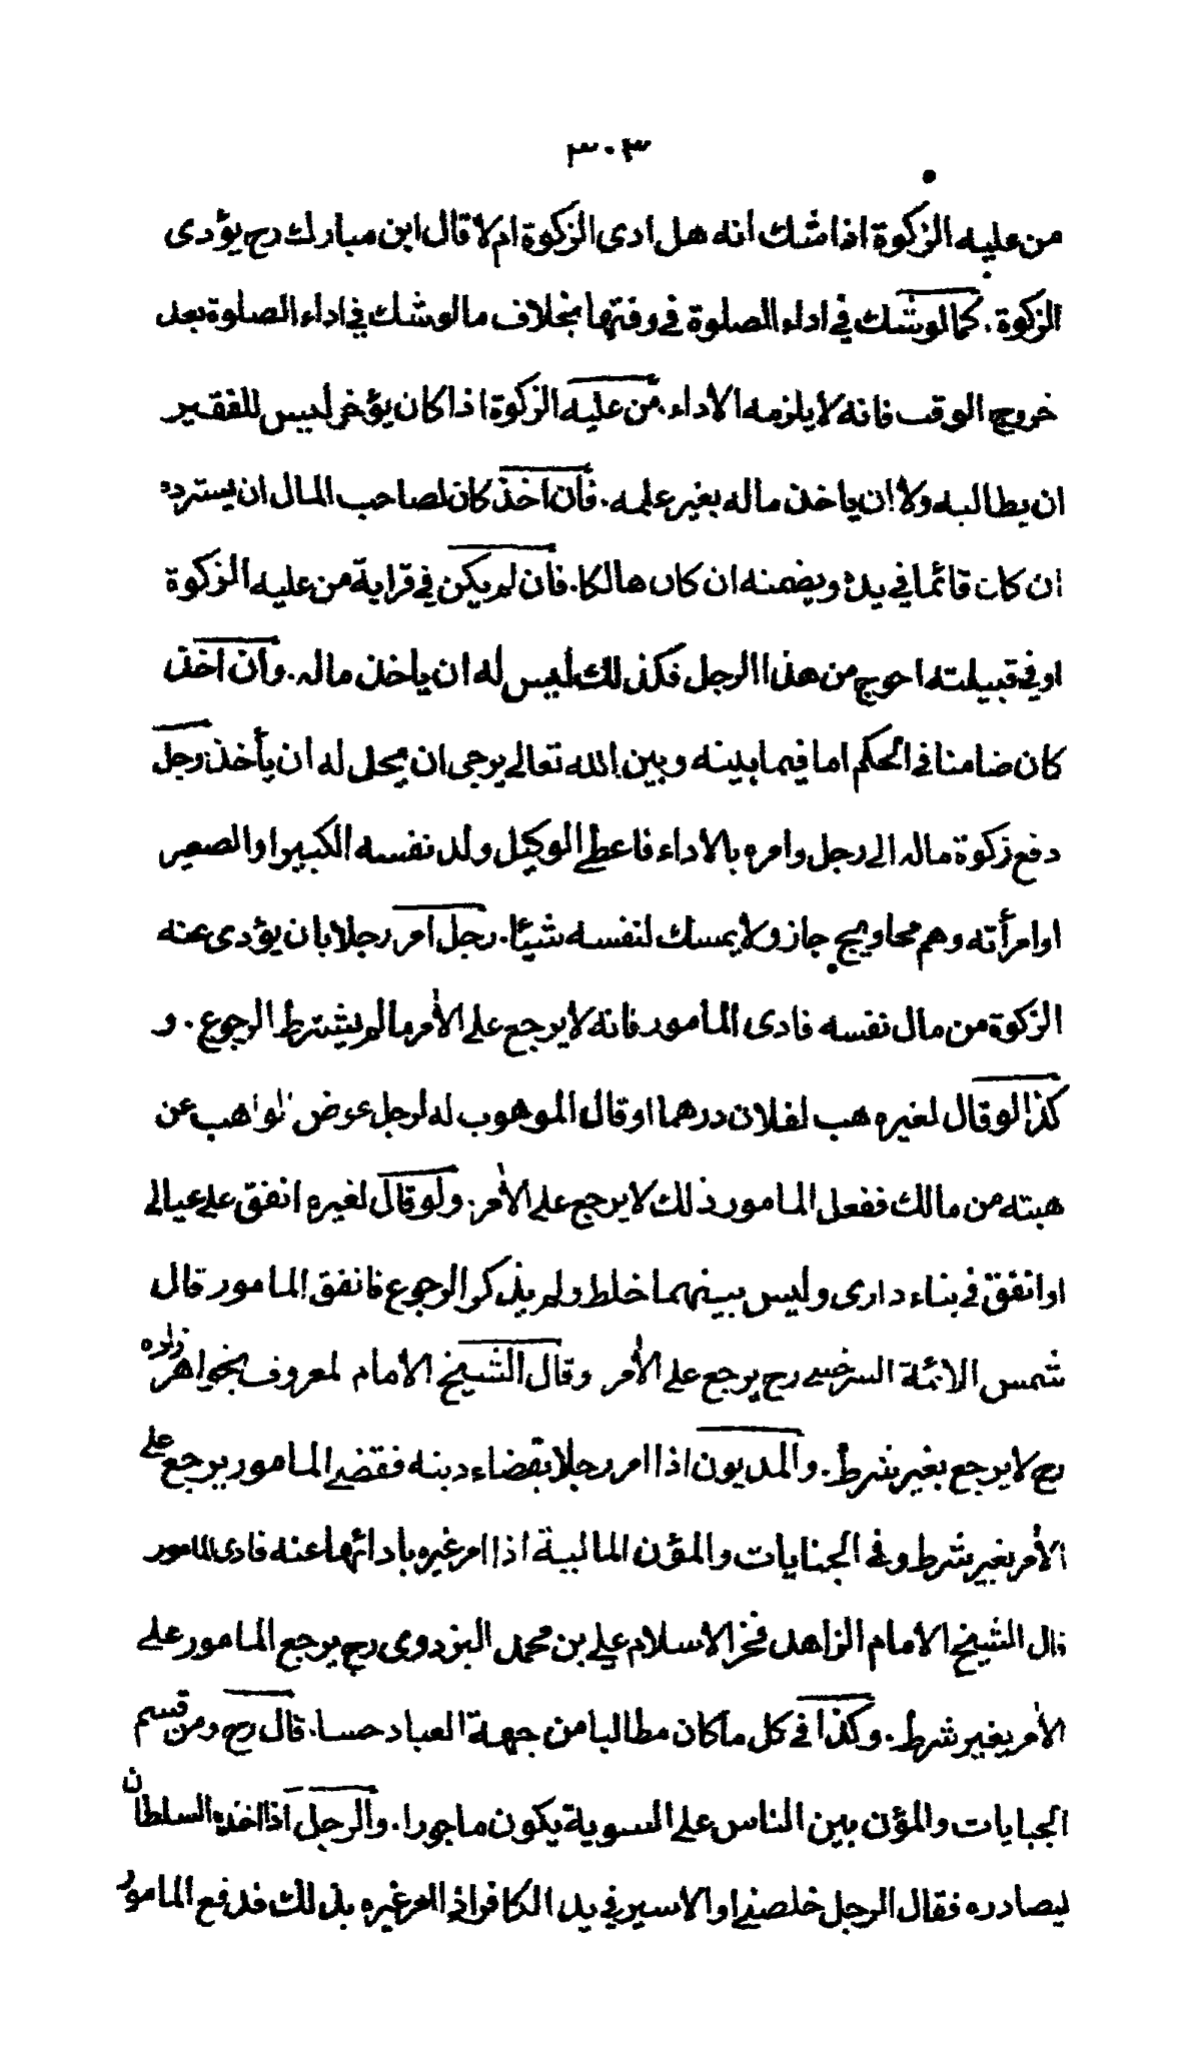 ٣٠٣
من عليه الزكوة اذا شك انه هل ادى الزكوة ام لا قال ابن مبارك رح يؤدى
الزكوة. كما لو شك في اداء الصلوة في وقتها بخلاف ما لو شك في اداء الصلوة بعد
خروج الوقت فانه لا يلزمه الاداء. من عليه الزكوة اذا كان يؤخر ليس للفقير
ان يطالبه ولا ان ياخذ ماله بغير علمه. فان اخذ كان لصاحب المال ان يسترده
ان كان قائما في يده ويضمنه ان كان هالكا. فان لم يكن في قرابة من عليه الزكوة
او في قبيلته احوج من هذا الرجل فكذلك ليس له ان ياخذ ماله. وان اخذ
كان ضامنا في الحكم اما فيما بينه وبين الله تعالى يرجى ان يحل له ان يأخذ رجل
دفع زكوة ماله الى رجل وامره بالاداء فاعطى الوكيل ولد نفسه الكبير او الصغير
او امرأته وهم محاويج جاز ولا يمسك لنفسه شيئا. رجل امر رجلا بان يؤدى عنه
الزكوة من مال نفسه فادى المامور فانه لا يرجع على الأمر ما لم يشترط الرجوع. و
كذا لو قال لغيره هب لفلان درهما او قال الموهوب له لرجل عوض الواهب عن
هبته من مالك ففعل المامور ذلك لا يرجع على الأمر. ولو قال لغيره انفق على عيالى
او انفق في بناء دارى وليس بينهما خلط ولم يذكر الرجوع فانفق المامور قال
شمس الائمة السرخسى رح يرجع على الأمر وقال الشيخ الامام لمعروف بخواهر زاده
رح لا يرجع بغير شرط. والمديون اذا امر رجلا بقضاء دينه فقضى المامور يرجع على
الأمر بغير شرط وفى الجنايات والمؤن المالية اذا امر غيره بادائها عنه فادى المامور
قال الشيخ الامام الزاهد فخر الاسلام على بن محمد البزدوى رح يرجع المامور على
الأمر بغير شرط. وكذا في كل ما كان مطالبا من جهة العباد حسا. قال رح ومن قسم
الجبايات والمؤن بين الناس على السوية يكون ماجورا. والرجل اذا اخذه السلطان
ليصادره فقال الرجل خلصنى او الاسير في يد الكافر اذا امر غيره بذلك فدفع المامور